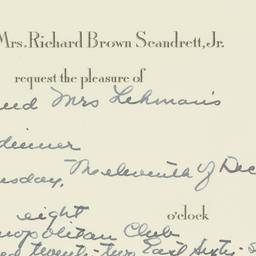 Mrs. Richard Brown Scandrett, Jr.
request the pleasure of
and Mrs Lehman's
dinner
sday, The eleventh of Dec
eight o'clock
ropolitan Club
ed twenty-two East Sixti-